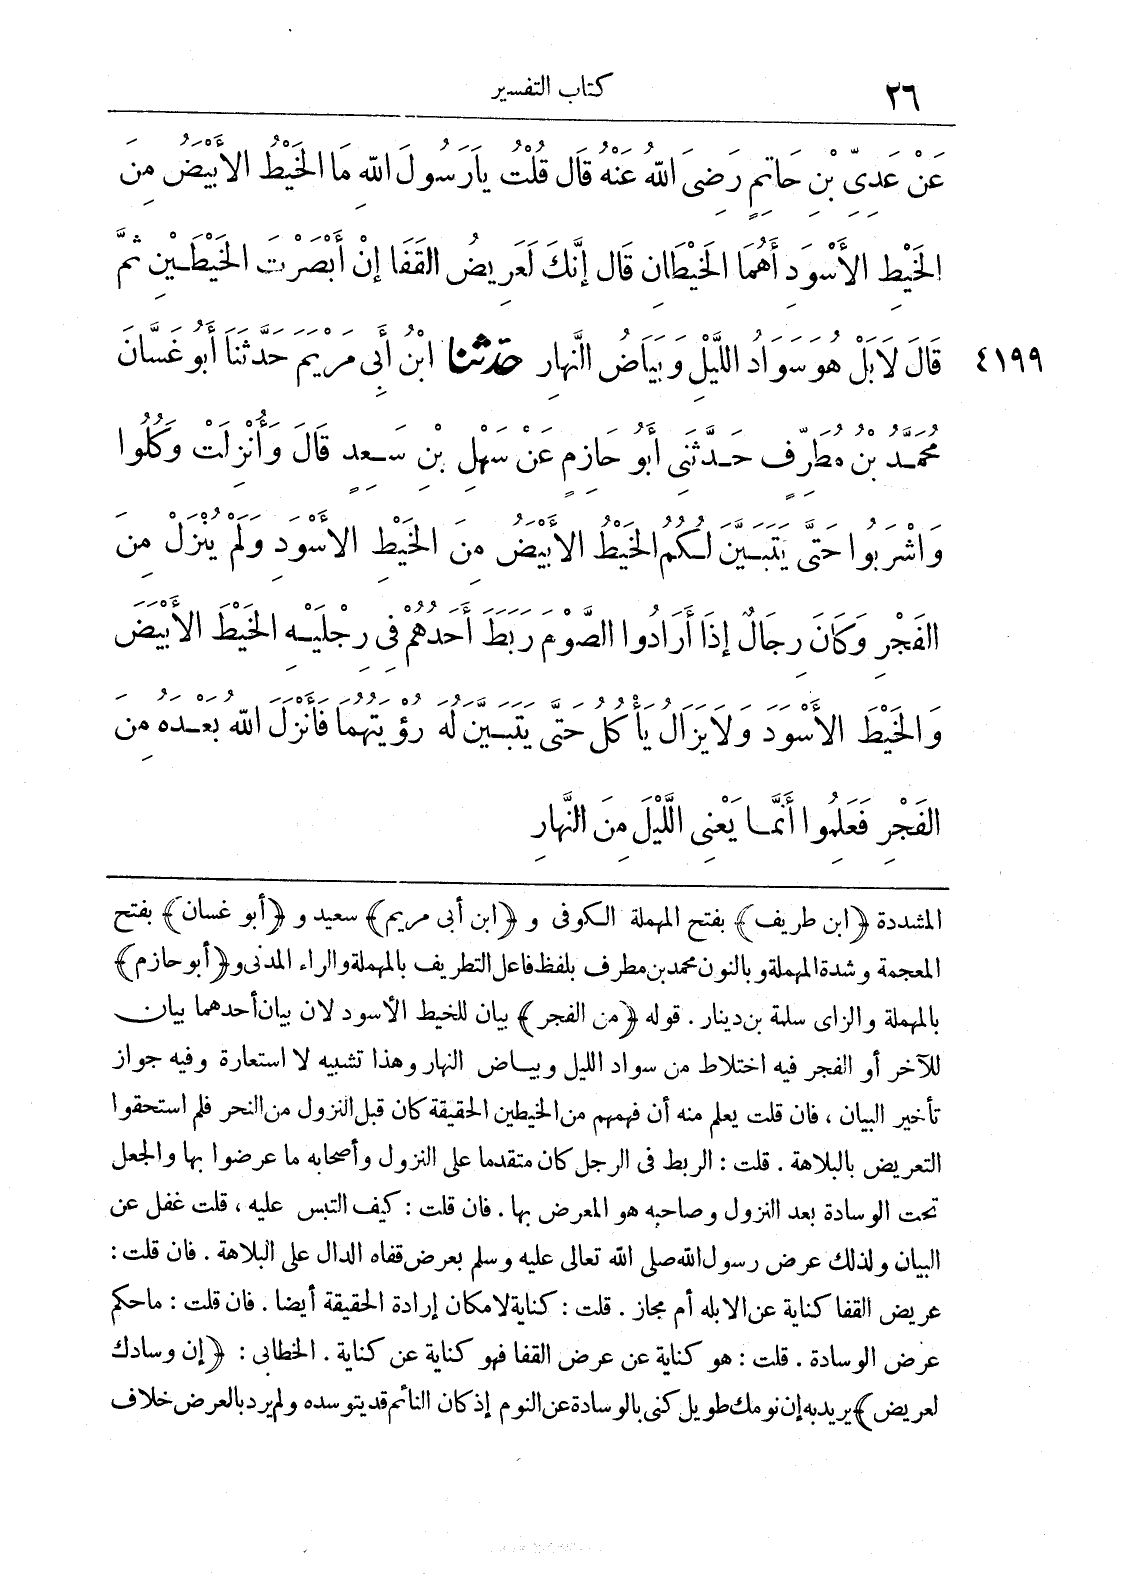 ٢٦
كتاب التفسير
عَنْ عَدِيِّ بْنِ حَاتِمٍ رَضِىَ اللهُ عَنْهُ قَالَ قُلْتُ يَارَسُولَ اللهِ مَا الخَيْطُ الأَبْيَضُ مِنَ
الخَيْطِ الأَسْوَدِ أَهُمَا الخَيْطَانِ قَالَ إِنَّكَ لَعَرِيضُ القَفَا إِنْ أَبْصَرْتَ الخَيْطَيْنِ ثُمَّ
٤١٩٩ قَالَ لَا بَلْ هُوَ سَوَادُ اللَّيْلِ وَبَيَاضُ النَّهَارِ حدثنا ابْنُ أَبِى مَرْيَمَ حَدَّثَنَا أَبُو غَسَّانَ
مُحَمَّدُ بْنُ مُطَرِّفٍ حَدَّثَنِى أَبُو حَازِمٍ عَنْ سَهْلِ بْنِ سَعِدٍ قَالَ وَأُنْزِلَتْ وَكُلُوا
وَاشْرَبُوا حَتَّى يَتَبَيَّنَ لَكُمُ الخَيْطُ الأَبْيَضُ مِنَ الخَيْطِ الأَسْوَدِ وَلَمْ يُنْزَلْ مِنَ
الفَجْرِ وَكَانَ رِجَالٌ إِذَا أَرَادُوا الصَّوْمَ رَبَطَ أَحَدُهُمْ فِى رِجْلَيْهِ الخَيْطَ الأَبْيَضَ
وَالخَيْطَ الأَسْوَدَ وَلَا يَزَالُ يَأْكُلُ حَتَّى يَتَبَيَّنَ لَهُ رُؤْيَتُهُمَا فَأَنْزَلَ اللهُ بَعْدَهُ مِنَ
الفَجْرِ فَعَلِمُوا أَنَّمَا يَعْنِى اللَّيْلَ مِنَ النَّهَارِ
المشددة ﴿ابن طريف﴾ بفتح المهملة الكوفى و ﴿ابن أبى مريم﴾ سعيد و ﴿أبو غسان﴾ بفتح
المعجمة وشدة المهملة وبالنون محمد بن مطرف بلفظ فاعل التطريف بالمهملة والراء المدنى و﴿أبو حازم﴾
بالمهملة والزاى سلمة بن دينار . قوله ﴿من الفجر﴾ بيان للخيط الأسود لان بيان أحدهما بيان
للآخر أو الفجر فيه اختلاط من سواد الليل وبياض النهار وهذا تشبيه لا استعارة وفيه جواز
تأخير البيان ، فان قلت يعلم منه أن فهمهم من الخيطين الحقيقة كان قبل النزول من النحر فلم استحقوا
التعريض بالبلاهة . قلت : الربط فى الرجل كان متقدما على النزول وأصحابه ما عرضوا بها والجعل
تحت الوسادة بعد النزول وصاحبه هو المعرض بها . فان قلت : كيف التبس عليه ، قلت غفل عن
البيان ولذلك عرض رسول الله صلى الله تعالى عليه وسلم بعرض قفاه الدال على البلاهة . فان قلت :
عريض القفا كناية عن الابله أم مجاز . قلت : كناية لامكان إرادة الحقيقة أيضا . فان قلت : ماحكم
عرض الوسادة . قلت : هو كناية عن عرض القفا فهو كناية عن كناية . الخطابى : ﴿إن وسادك
لعريض﴾ يريد به إن نومك طويل كنى بالوسادة عن النوم إذ كان النائم قد يتوسده ولم يرد بالعرض خلاف